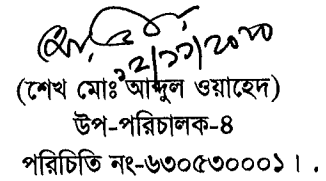 ১২/১১/২০২০
(শেখ মোঃ আব্দুল ওয়াহেদ)
উপ-পরিচালক-৪
পরিচিতি নং-৬৩০৫৩০০০১।